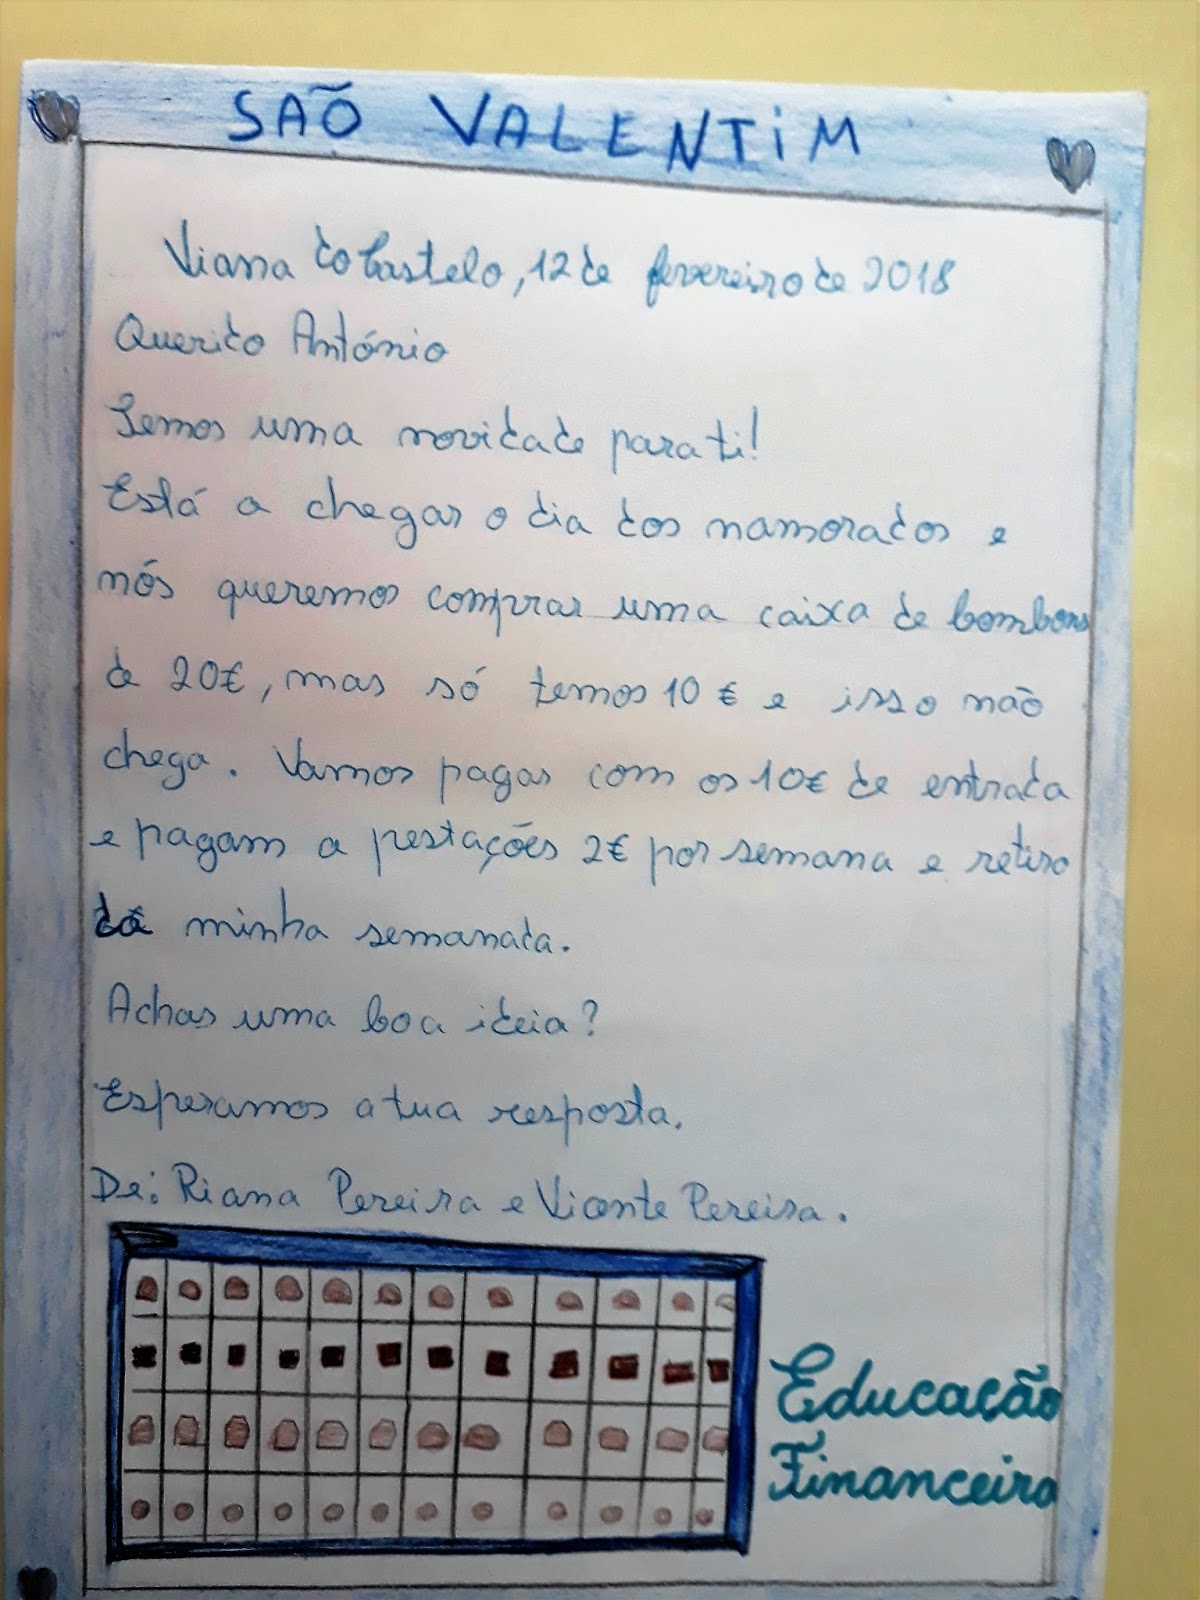 SÃO VALENTIM
Viana do Castelo, 12 de fevereiro de 2018
Querido António
Temos uma novidade para ti!
Está a chegar o dia dos namorados e
nós queremos comprar uma caixa de bombons
de 20€, mas só temos 10 € e isso não
chega. Vamos pagar com os 10€ de entrada
e pagam a prestações 2€ por semana e retiro
da minha semanada.
Achas uma boa ideia?
Esperamos a tua resposta.
De: Riana Pereira e Vicente Pereira.
Educação
Financeira